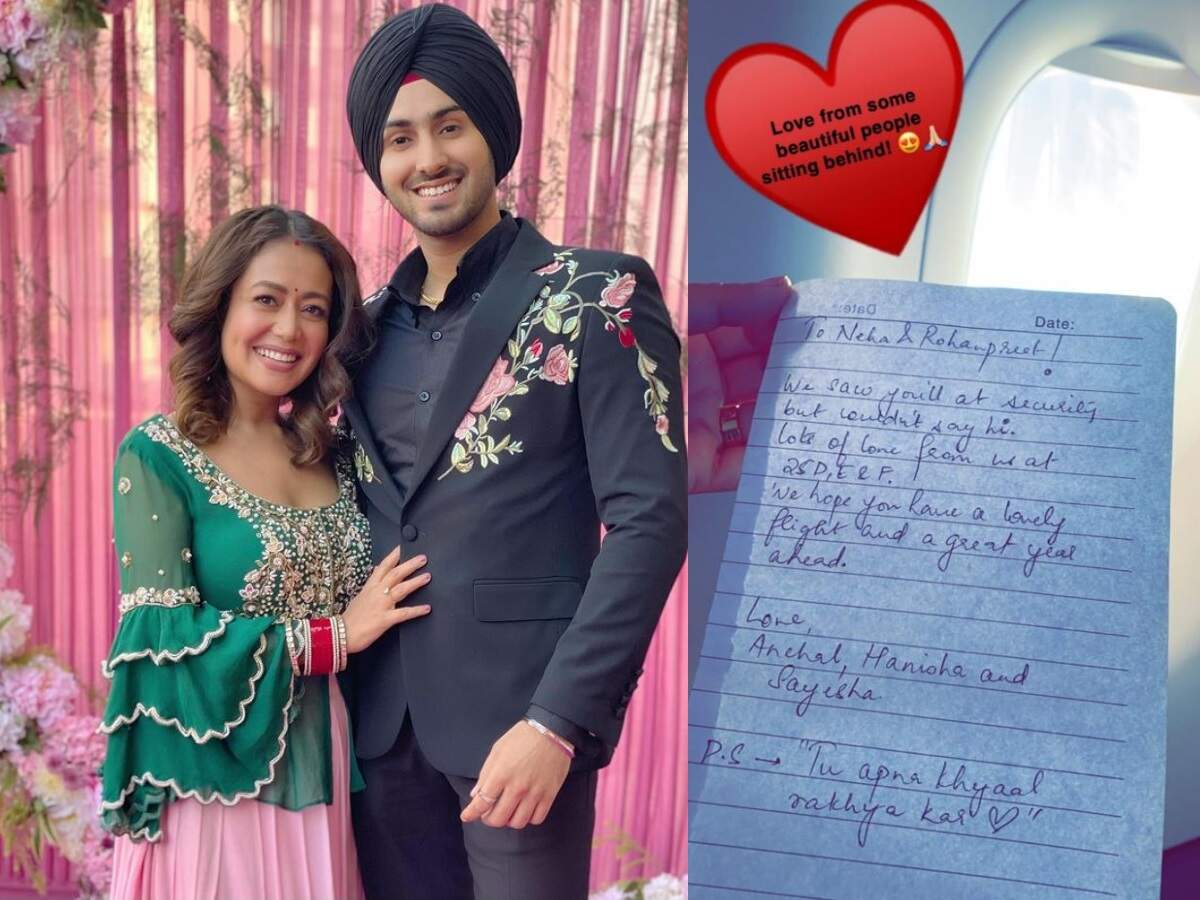 Love from some
beautiful people
sitting behind! 😍🙏🏻
Date:
Date:
To Neha & Rohanpreet!
We saw you'll at security
but couldn't say hi.
Lots of love from us at
25D, E & F.
We hope you have a lovely
flight and a great year
ahead.
Love,
Anchal, Hanisha and
Sayesha
P.S → "Tu apna khyaal
rakhya kar ♡"